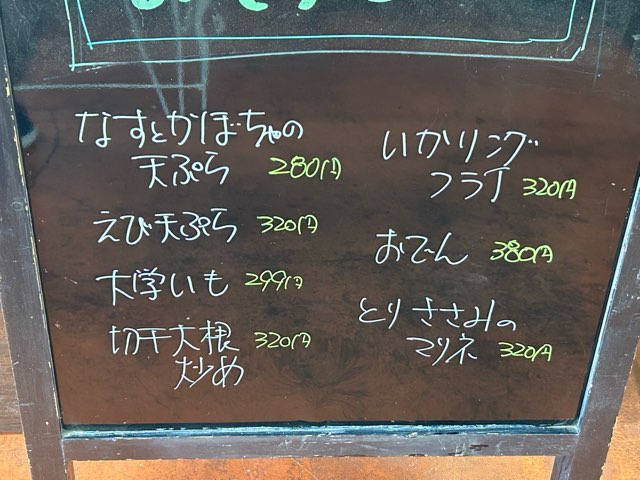 なすとかぼちゃの
天ぷら 280円
えび天ぷら 320円
大学いも 299円
切干大根 320円
炒め
いかリング
フライ 320円
おでん 380円
とりささみの
マリネ 320円